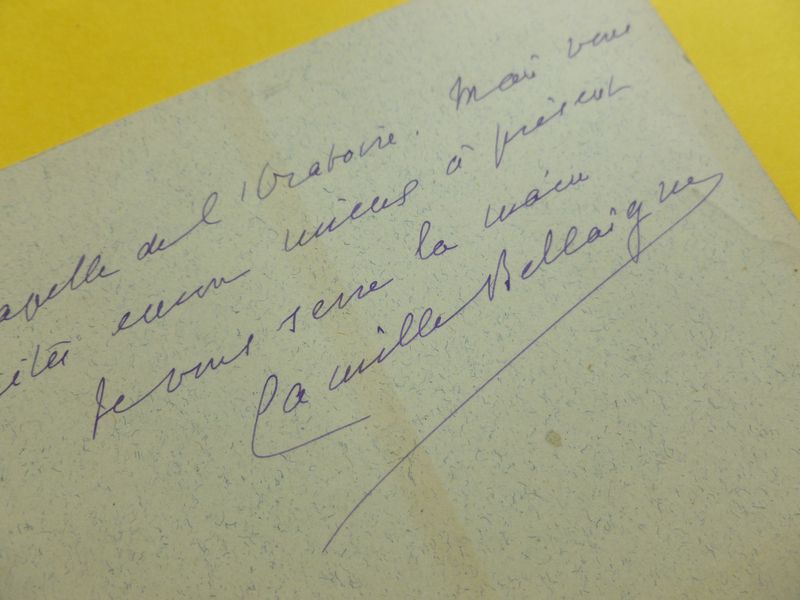 chapelle de l'Oratoire. Mais vous
êtes encore mieux à présent
Je vous serre la main
Camille Bellaigue